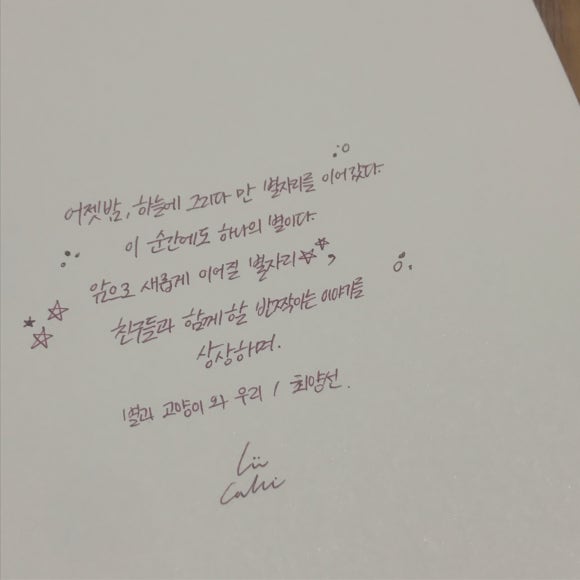 어젯밤, 하늘에 그리다 만 별자리를 이어갔다.
이 순간에도 하나의 별이다.
앞으로 새롭게 이어질 별자리,
친구들과 함께 할 반짝이는 이야기를
상상하며.
별과 고양이 와 우리 / 최양선.